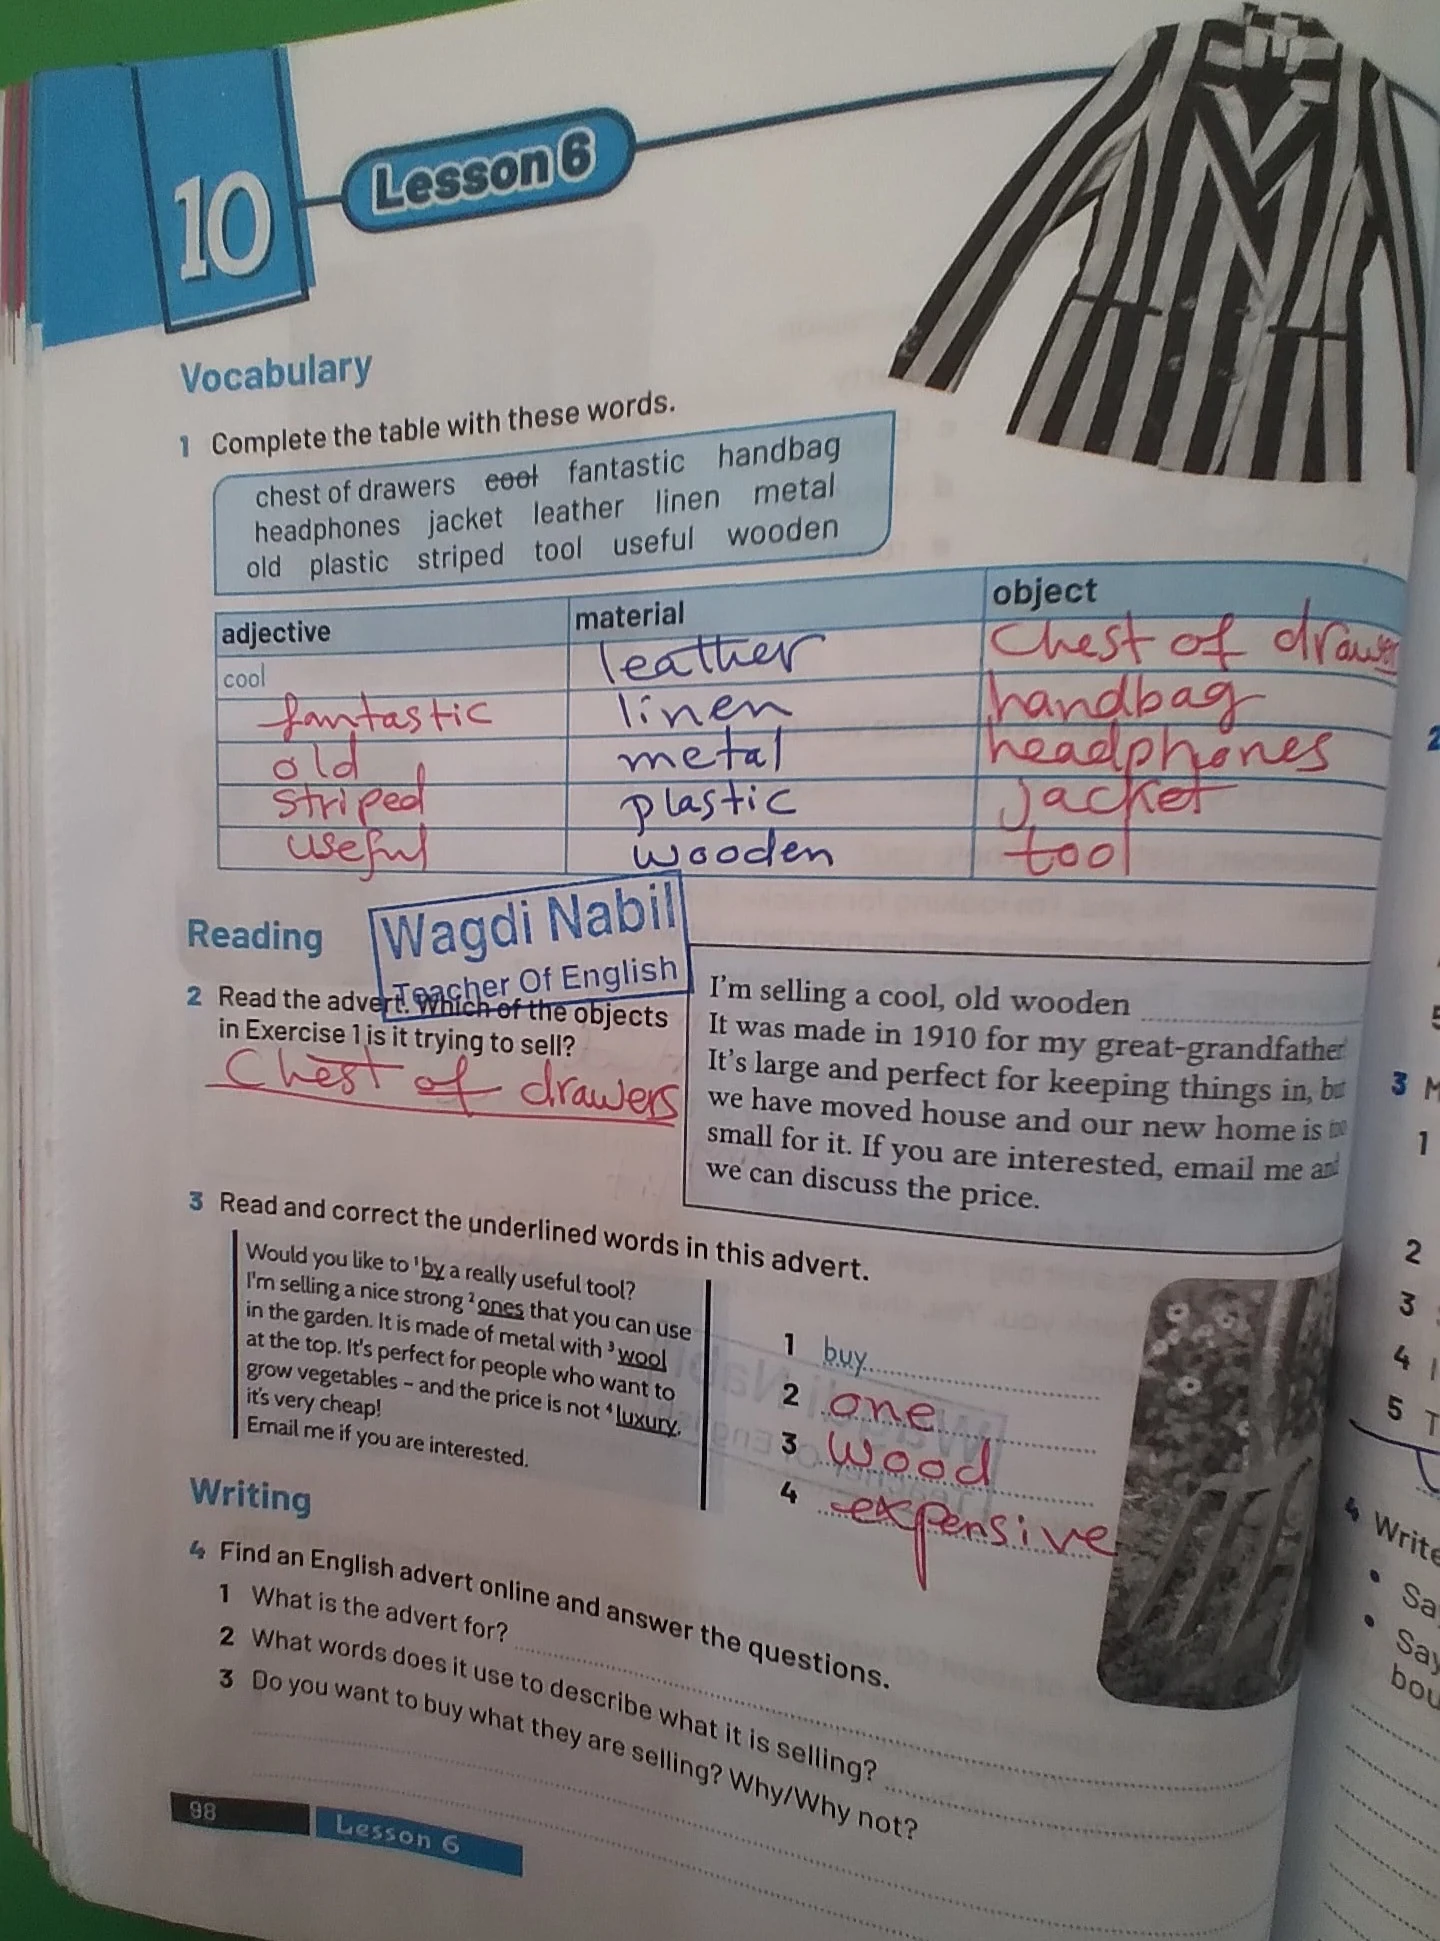 10
Lesson 6
Vocabulary
1 Complete the table with these words.
chest of drawers cool fantastic handbag
headphones jacket leather linen metal
old plastic striped tool useful wooden
adjective material object
cool leather chest of drawers
fantastic linen handbag
old metal headphones
striped plastic jacket
useful wooden tool
Reading
Wagdi Nabil
Teacher Of English
2 Read the advert. Which of the objects
in Exercise 1 is it trying to sell?
Chest of drawers
I'm selling a cool, old wooden
It was made in 1910 for my great-grandfather
It's large and perfect for keeping things in, but
we have moved house and our new home is too
small for it. If you are interested, email me and
we can discuss the price.
3 Read and correct the underlined words in this advert.
Would you like to 1by a really useful tool?
I'm selling a nice strong 2ones that you can use
in the garden. It is made of metal with 3wool
at the top. It's perfect for people who want to
grow vegetables – and the price is not 4luxury,
it's very cheap!
Email me if you are interested.
1 buy
2 one
3 wood
4 expensive
Writing
4 Find an English advert online and answer the questions.
1 What is the advert for?
2 What words does it use to describe what it is selling?
3 Do you want to buy what they are selling? Why/Why not?
98 Lesson 6
2
5
3 M
1
2
3
4
5 T
4 Write
• Sa
• Say
bou